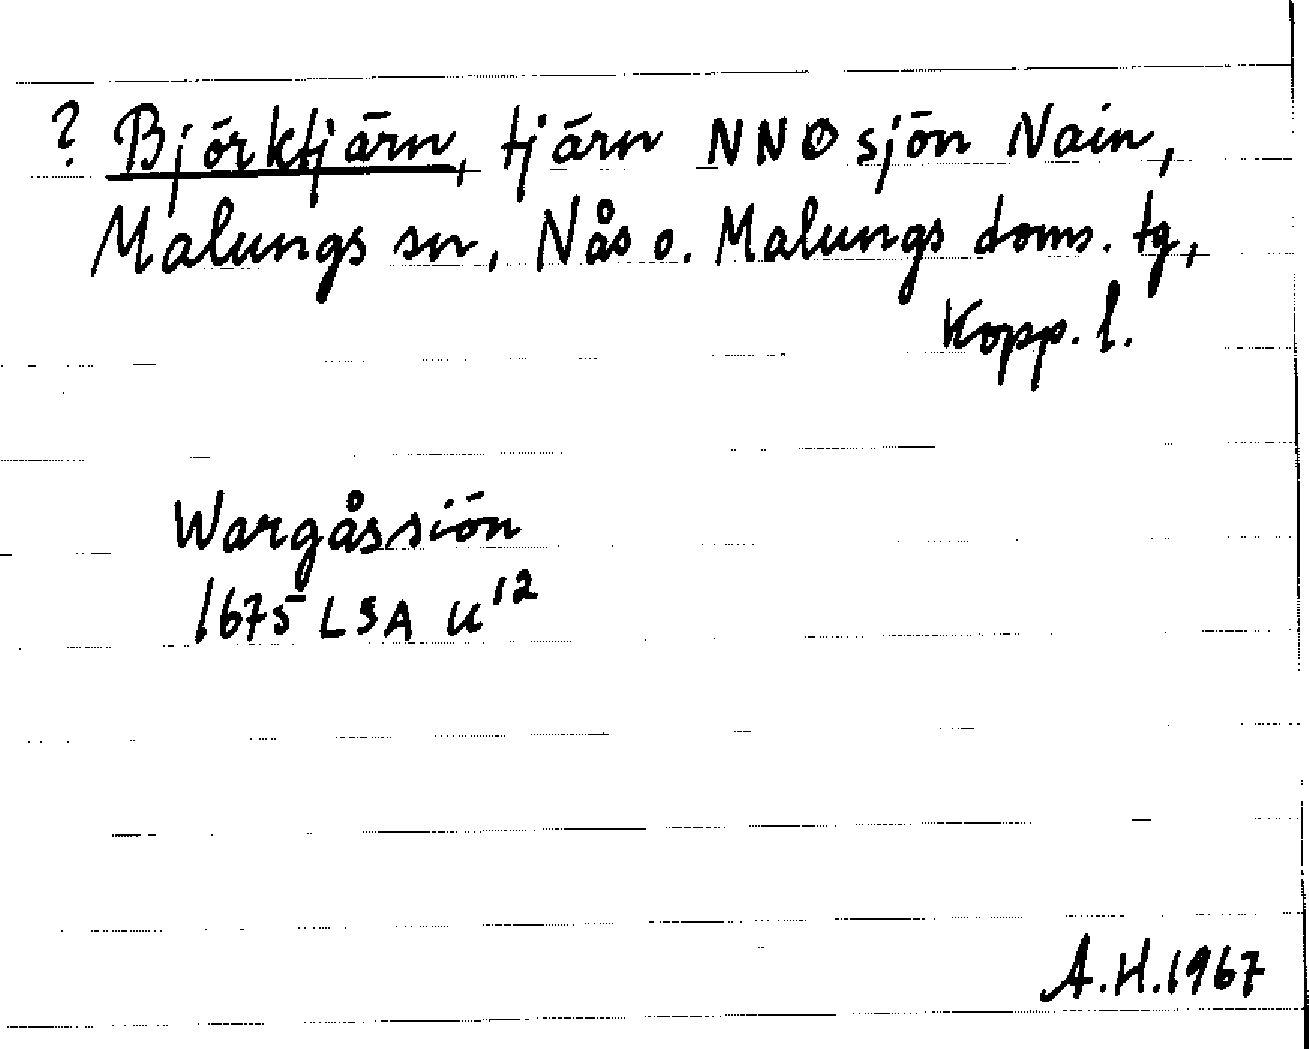 ? Björktjärn, tjärn NNO sjön Nain,
Malungs sn, Nås o. Malungs doms. tg,
Kopp. l.
Wargåssiön
1675 LSA U¹²
A.H. 1967